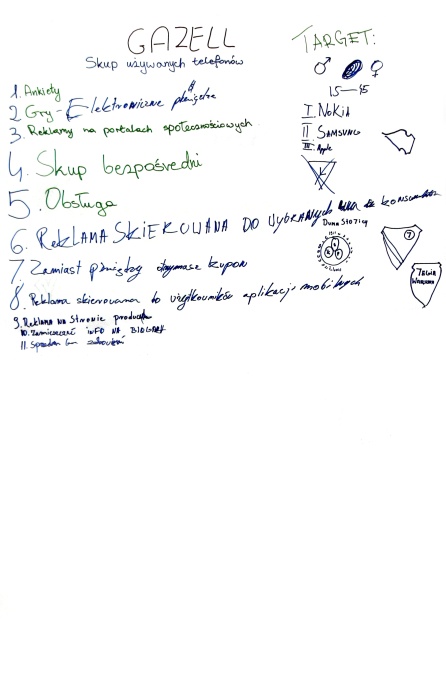 GAZELL
Skup używanych telefonów
1. Ankiety
2 Gry - Elektroniczne pieniądze
3. Reklamy na portalach społecznościowych
4. Skup bezpośredni
5. Obsługa
6. REKLAMA SKIEROWANA DO WYBRANYCH
7. Zamiast pieniędzy otrzymasz kupon
8. Reklama skierowana do użytkowników aplikacji mobilnych
9. REKLAMA NA STRONIE
10. Zamieszczać INFO NA
11.
TARGET:
♂ ♀
15 - 45
I. NOKIA
II SAMSUNG
III. Apple
L
DUMA STOLICY
7